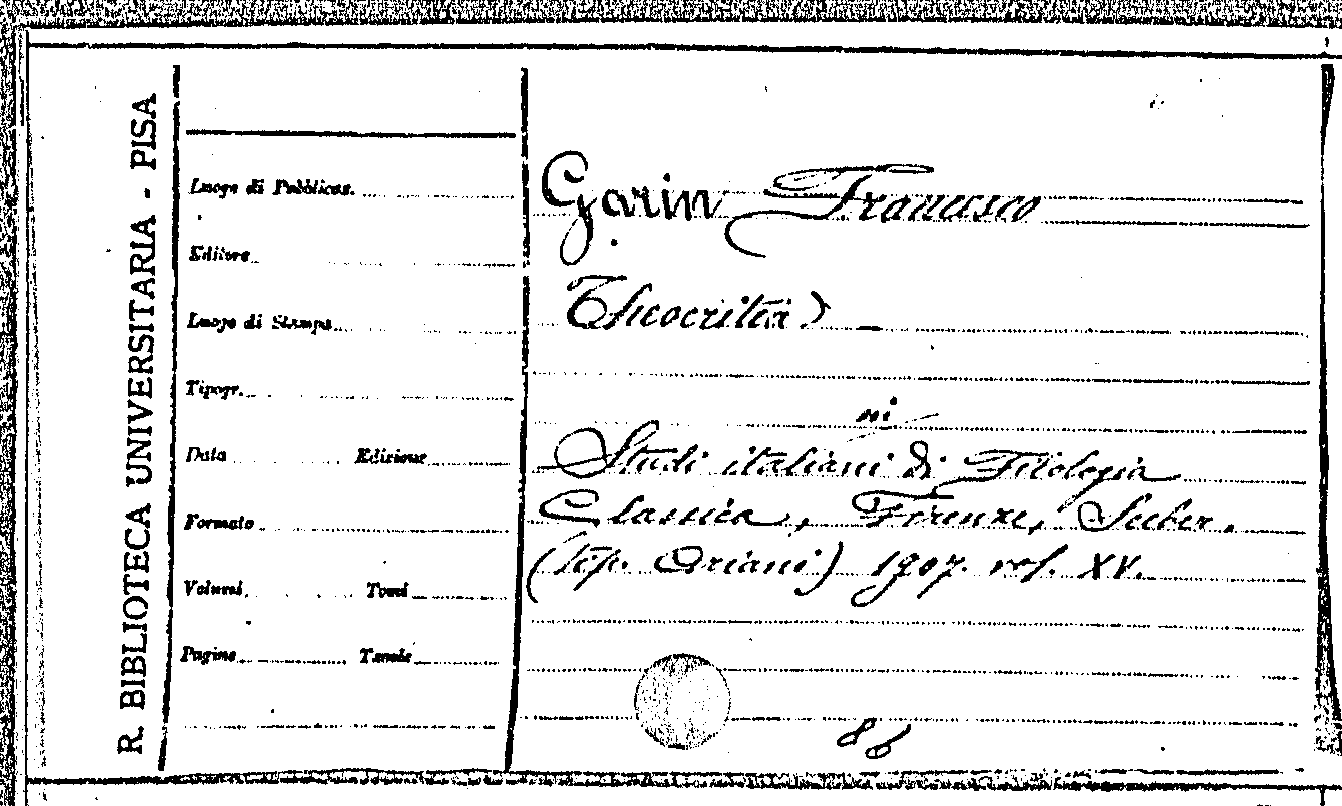 R. BIBLIOTECA UNIVERSITARIA - PISA
Luogo di Pubblicaz.
Editore
Luogo di Stampa
Tipogr.
Data Edizione
Formato
Volumi Tomi
Pagine Tavole
Garin Francesco
Theocritea
in
Studi italiani di Filologia
Classica, Firenze, Seeber.
(tip. Ariani) 1907. vol. XV.
86